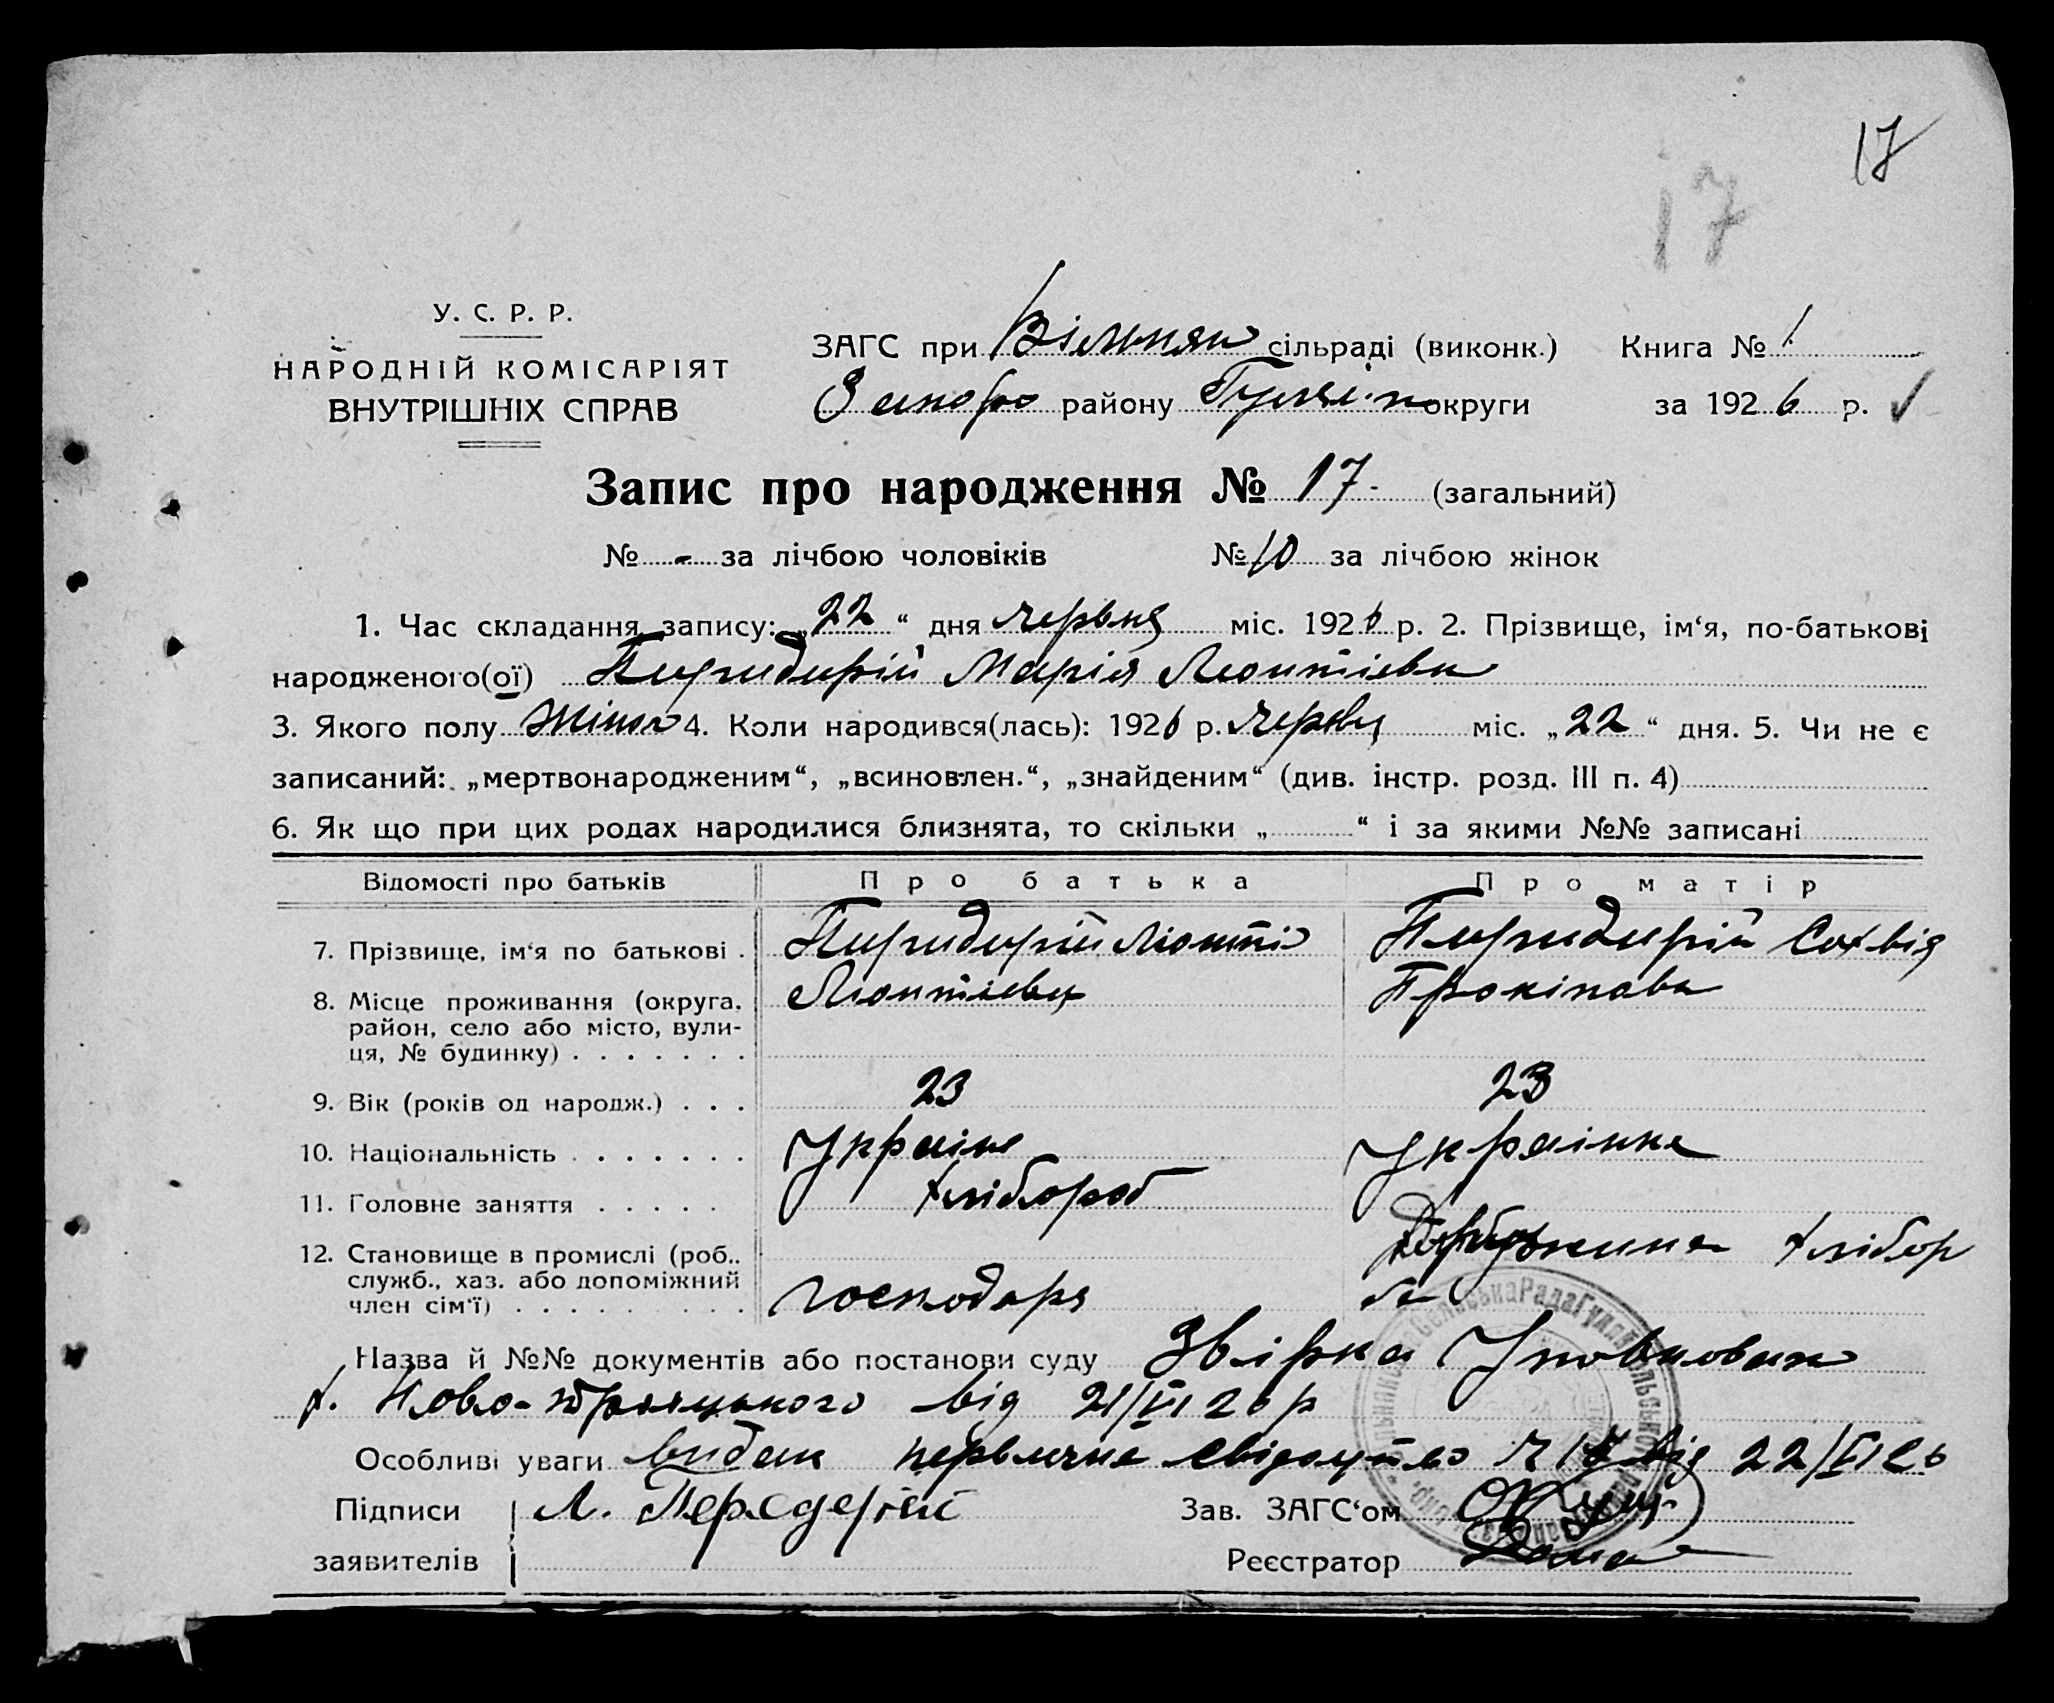 17
17
У. С. Р. Р.
НАРОДНІЙ КОМІСАРІЯТ
ВНУТРІШНІХ СПРАВ
ЗАГС при Вільнян сільраді (виконк.) Книга № 1
Запоро району Гуляіп округи за 1926 р.
Запис про народження № 17 (загальний)
№ - за лічбою чоловіків № 10 за лічбою жінок
1. Час складання запису: „22“ дня червня міс. 1926 р. 2. Прізвище, ім‘я, по-батькові
народженого(ої) Пиридирій Марія Леонтіевн
3. Якого полу Жіноч 4. Коли народився(лась): 1926 р. червн міс. „22“ дня. 5. Чи не є
записаний: „мертвонародженим“, „всиновлен.“, „знайденим“ (див. інстр. розд. III п. 4)
6. Як що при цих родах народилися близнята, то скільки „ “ і за якими №№ записані
Відомості про батьків Про батька Про матір
7. Прізвище, ім‘я по батькові . Пиридирій Леонті Пиридирій Софія
8. Місце проживання (округа, Леонтієвич Прокіповн
район, село або місто, вули-
ця, № будинку) . . . . . . .
9. Вік (років од народж.) . . . 23 23
10. Національність . . . . . . . Украіне Украінка
11. Головне заняття . . . . . хлібороб
12. Становище в промислі (роб.. хлібор
служб., хаз. або допоміжний господаря
член сім‘ї) . . . . . . . .
Назва й №№ документів або постанови суду Звірка Уповновах
х. Ново-троіцького від 21/VI 26 р
Особливі уваги видан первичне свідоцтво Ч 17 від 22/VI 26
Підписи Л. Передерій Зав. ЗАГС‘ом
заявителів Реєстратор